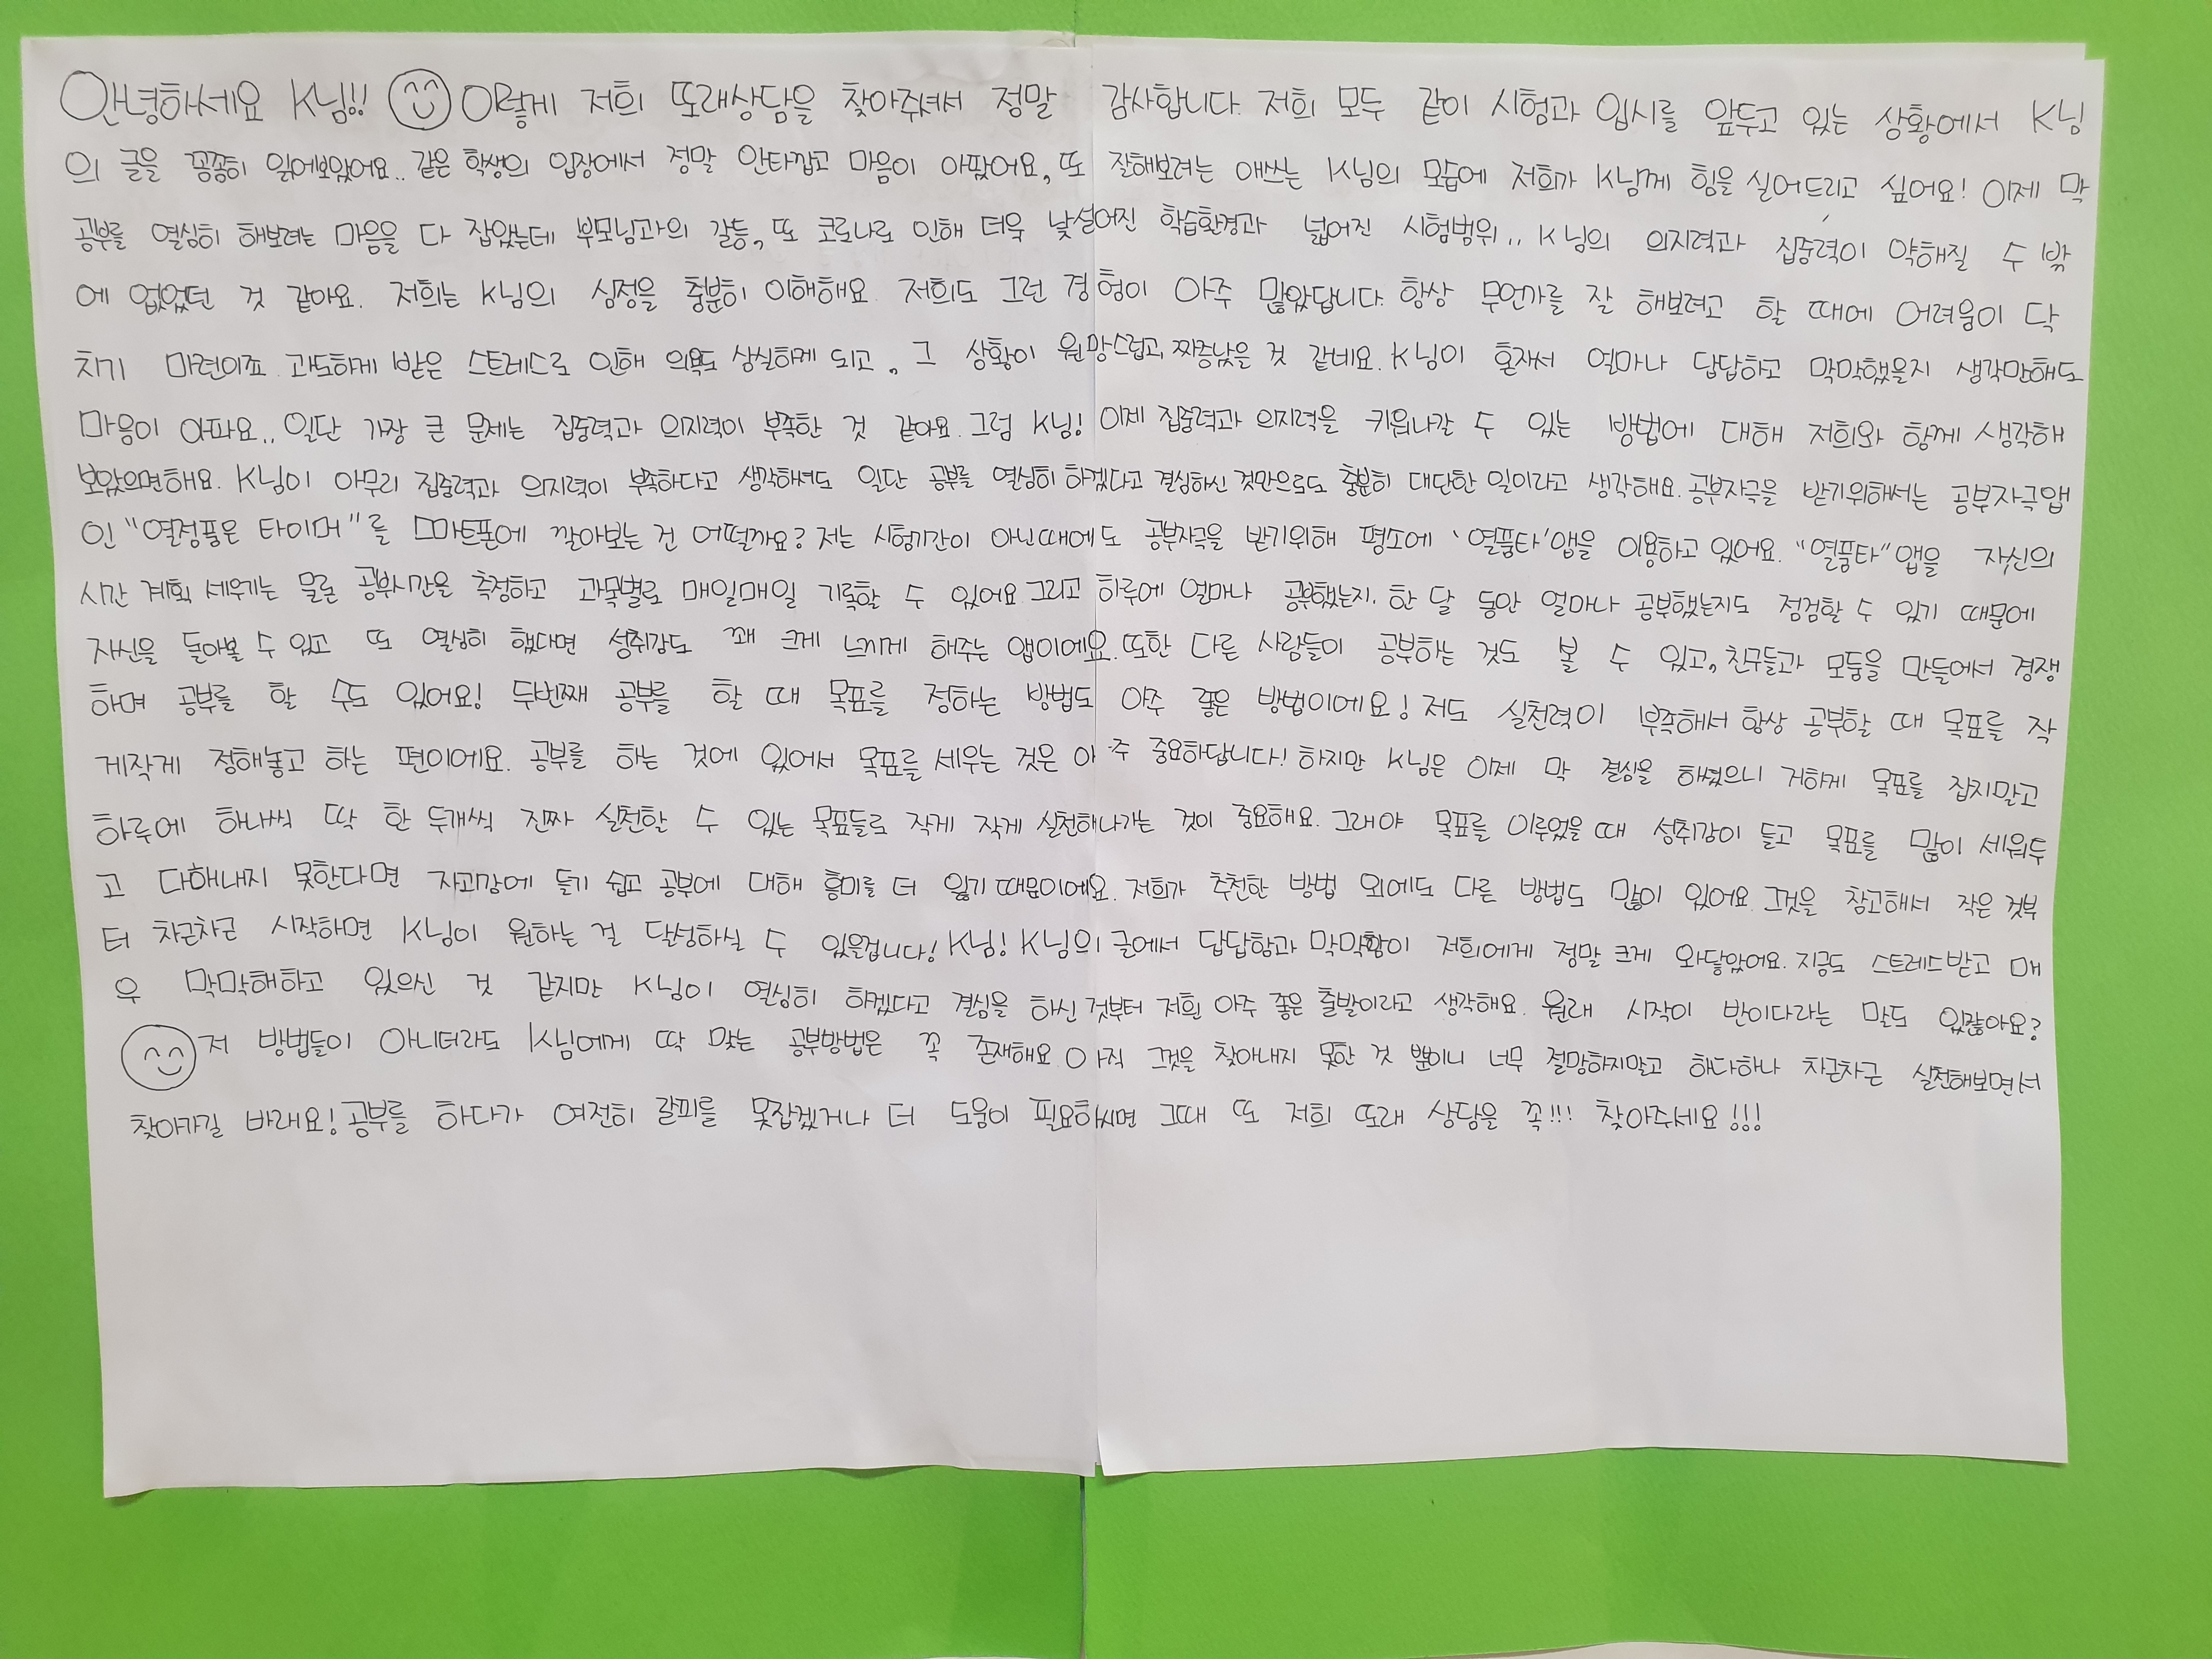 안녕하세요 K님!! 이렇게 저희 또래상담을 찾아주셔서 정말 감사합니다. 저희 모두 같이 시험과 입시를 앞두고 있는 상황에서 K님
의 글을 꼼꼼히 읽어보았어요.. 같은 학생의 입장에서 정말 안타깝고 마음이 아팠어요, 또 잘해보려는 애쓰는 K님의 모습에 저희가 K님께 힘을 실어드리고 싶어요! 이제 막
공부를 열심히 해보려는 마음을 다 잡았는데 부모님과의 갈등, 또 코로나로 인해 더욱 낯설어진 학습환경과 넓어진 시험범위.. K님의 의지력과 집중력이 약해질 수 밖
에 없었던 것 같아요. 저희는 K님의 심정을 충분히 이해해요. 저희도 그런 경험이 아주 많았답니다. 항상 무언가를 잘 해보려고 할 때에 어려움이 닥
치기 마련이죠. 과도하게 받은 스트레스로 인해 의욕도 상실하게 되고, 그 상황이 원망스럽고, 짜증났을 것 같네요. K님이 혼자서 얼마나 답답하고 막막했을지 생각만해도
마음이 아파요.. 일단 가장 큰 문제는 집중력과 의지력이 부족한 것 같아요. 그럼 K님! 이제 집중력과 의지력을 키워나갈 수 있는 방법에 대해 저희와 함께 생각해
보았으면해요. K님이 아무리 집중력과 의지력이 부족하다고 생각하셔도 일단 공부를 열심히 하겠다고 결심하신 것만으로도 충분히 대단한 일이라고 생각해요. 공부자극을 받기위해서는 공부자극앱
인 "열정품은 타이머"를 스마트폰에 깔아보는 건 어떨까요? 저는 시험기간이 아닌때에도 공부자극을 받기위해 평소에 '열품타'앱을 이용하고 있어요. "열품타"앱을 자신의
시간 계획 세우기는 물론 공부시간을 측정하고 과목별로 매일매일 기록할 수 있어요 그리고 하루에 얼마나 공부했는지. 한 달 동안 얼마나 공부했는지도 점검할 수 있기 때문에
자신을 돌아볼 수 있고 또 열심히 했다면 성취감도 꽤 크게 느끼게 해주는 앱이에요. 또한 다른 사람들이 공부하는 것도 볼 수 있고, 친구들과 모둠을 만들어서 경쟁
하며 공부를 할 수도 있어요! 두번째 공부를 할 때 목표를 정하는 방법도 아주 좋은 방법이에요! 저도 실천력이 부족해서 항상 공부할 때 목표를 작
게작게 정해놓고 하는 편이에요. 공부를 하는 것에 있어서 목표를 세우는 것은 아주 중요하답니다! 하지만 K님은 이제 막 결심을 하셨으니 거하게 목표를 잡지말고
하루에 하나씩 딱 한 두개씩 진짜 실천할 수 있는 목표들로 작게 작게 실천해나가는 것이 중요해요. 그래야 목표를 이루었을 때 성취감이 들고 목표를 많이 세워두
고 다해내지 못한다면 자괴감에 들기 쉽고 공부에 대해 흥미를 더 잃기 때문이에요. 저희가 추천한 방법 외에도 다른 방법도 많이 있어요. 그것을 참고해서 작은 것부
터 차근차근 시작하면 K님이 원하는 걸 달성하실 수 있을겁니다! K님! K님의 글에서 답답함과 막막함이 저희에게 정말 크게 와닿았어요. 지금도 스트레스받고 매
우 막막해하고 있으신 것 같지만 K님이 열심히 하겠다고 결심을 하신 것부터 저흰 아주 좋은 출발이라고 생각해요. 원래 시작이 반이다라는 말도 있잖아요?
저 방법들이 아니더라도 K님에게 딱 맞는 공부방법은 꼭 존재해요. 아직 그것을 찾아내지 못한 것 뿐이니 너무 절망하지말고 하다하나 차근차근 실천해보면서
찾아가길 바래요! 공부를 하다가 여전히 갈피를 못잡겠거나 더 도움이 필요하시면 그때 또 저희 또래 상담을 꼭!!! 찾아주세요!!!